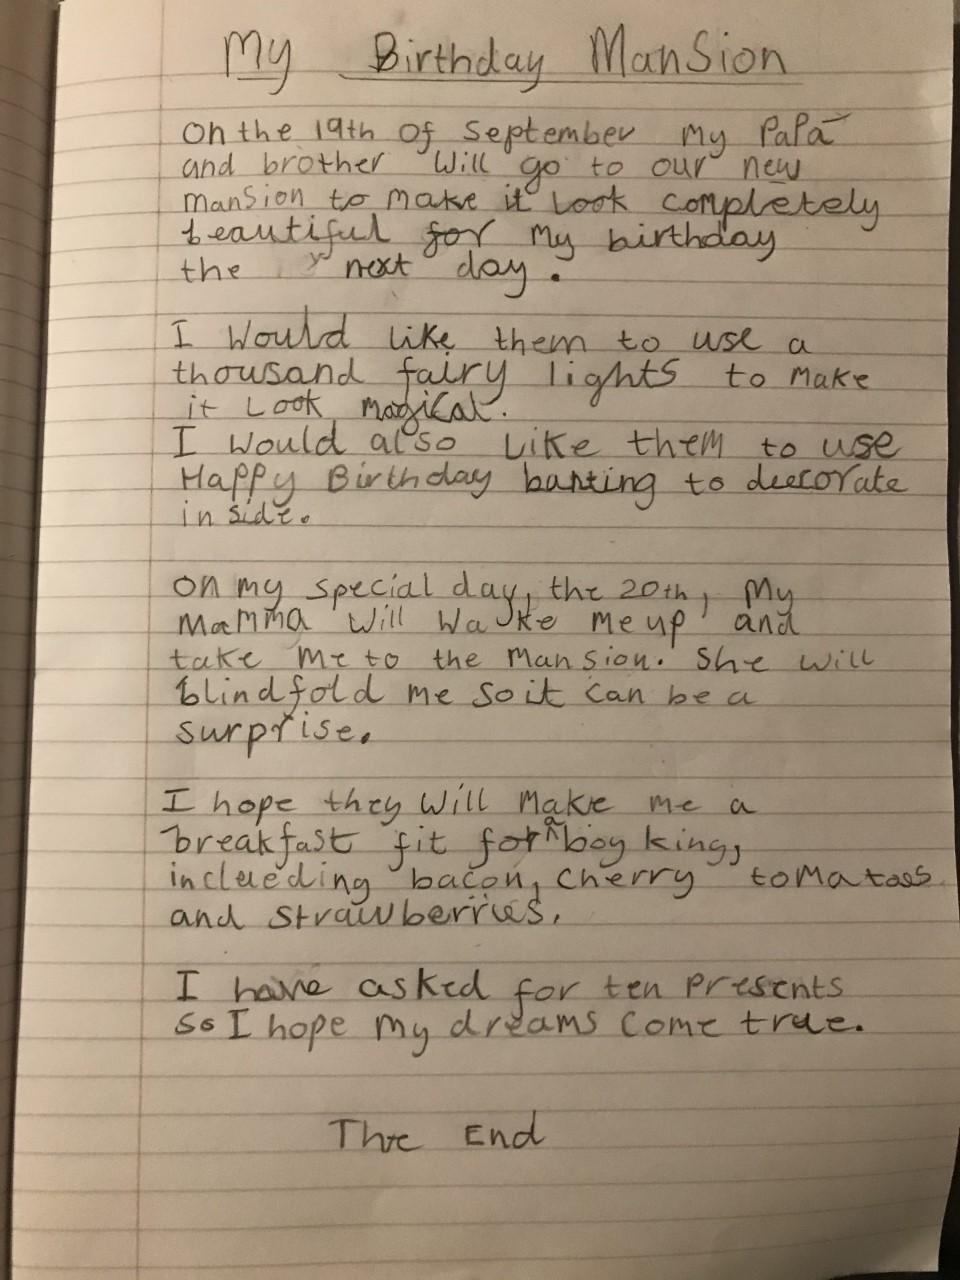 My Birthday Mansion
On the 19th of September my Papa
and brother will go to our new
mansion to make it look completely
beautiful for my birthday
the next day.
I would like them to use a
thousand fairy lights to make
it look magical.
I would also like them to use
Happy Birthday banting to decorate
inside.
On my special day, the 20th, my
Mamma will wake me up and
take me to the mansion. She will
blindfold me so it can be a
surprise.
I hope they will make me a
breakfast fit for a boy king,
inclueding bacon, cherry tomatoes
and strawberries.
I have asked for ten presents
so I hope my dreams come true.
The End